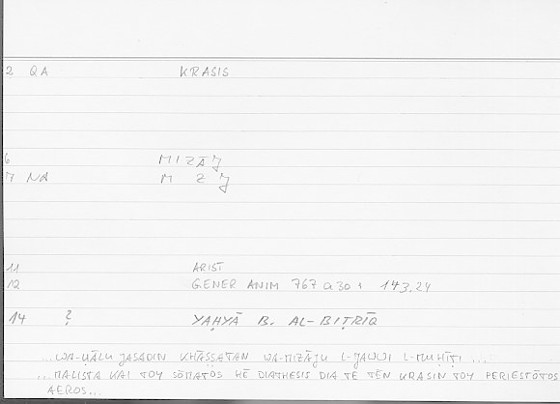 2 QA KRASIS
6 MIZĀJ
7 NA M Z J
11 ARIST
12 GENER ANIM 767 a 30 143.24
14 ? YAḤYĀ B. AL-BIṬRĪQ
...WA-ḤĀLU JASADIN KHĀṢṢATAN WA-MIZĀJU L-JAWWI L-MUḤĪṬI ...
...MALISTA KAI TOY SŌMATOS HĒ DIATHESIS DIA TE TĒN KRASIN TOY PERIESTŌTOS
AEROS...